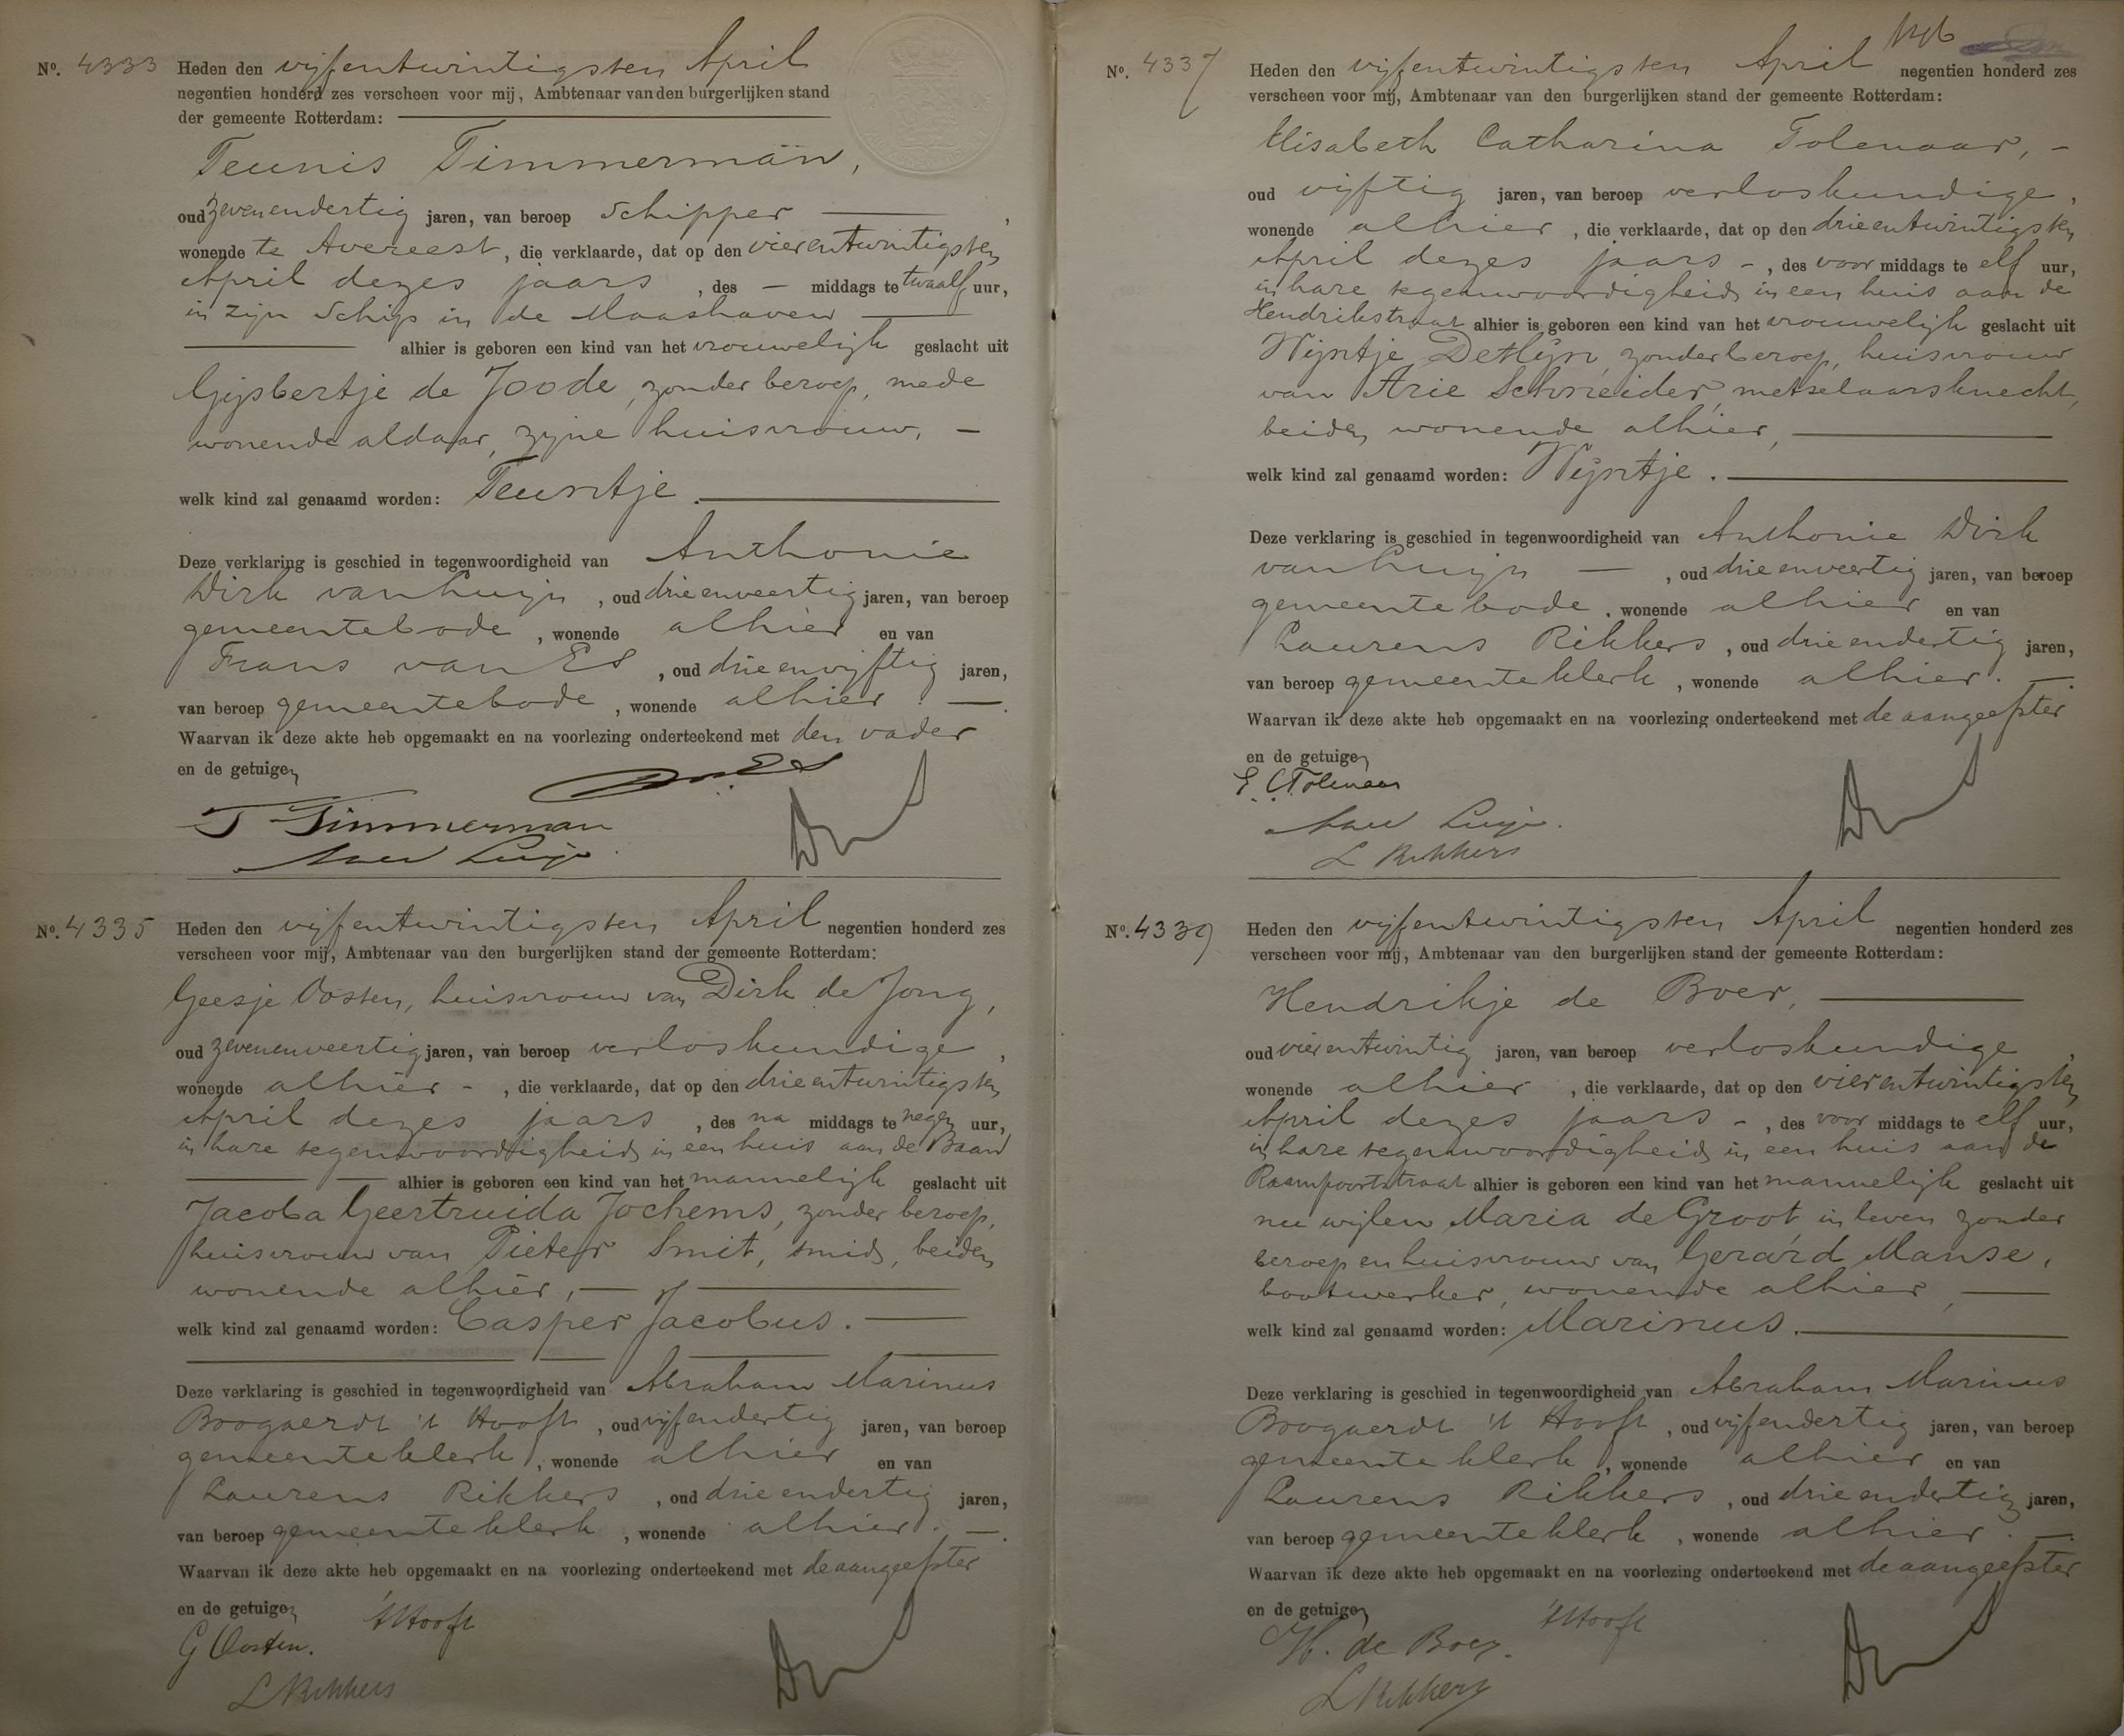 No. 4333 Heden den vijfentwintigsten April
negentien honderd zes verscheen voor mij, Ambtenaar van den burgerlijken stand
der gemeente Rotterdam:
Teunis Timmerman,
oud zevenendertig jaren, van beroep Schipper,
wonende te Avereest, die verklaarde, dat op den vierentwintigsten
April dezes jaars, des — middags te twaalf uur,
in zijn Schip in de Maashaven
alhier is geboren een kind van het vrouwelijk geslacht uit
Gijsbertje de Joode, zonder beroep, mede
wonende aldaar, zijne huisvrouw, —
welk kind zal genaamd worden: Teuntje.
Deze verklaring is geschied in tegenwoordigheid van Anthonie
Dirk van Luijn, oud drieenveertig jaren, van beroep
gemeentebode, wonende alhier en van
Frans van Es, oud drieenvijftig jaren,
van beroep gemeentebode, wonende alhier. —.
Waarvan ik deze akte heb opgemaakt en na voorlezing onderteekend met den vader
en de getuigen
van Es
T Timmerman
No. 4335 Heden den vijfentwintigsten April negentien honderd zes
verscheen voor mij, Ambtenaar van den burgerlijken stand der gemeente Rotterdam:
Geesje Oosten, huisvrouw van Dirk de Jong,
oud zevenenveertig jaren, van beroep verloskundige,
wonende alhier -, die verklaarde, dat op den drieentwintigsten
April dezes jaars, des na middags te negen uur,
in hare tegenwoordigheid, in een huis aan de Baan
alhier is geboren een kind van het mannelijk geslacht uit
Jacoba Geertruida Jochems, zonder beroep,
huisvrouw van Pieter Smit, smid, beiden
wonende alhier, —
welk kind zal genaamd worden: Casper Jacobus. —
Deze verklaring is geschied in tegenwoordigheid van Abraham Marinus
Boogaerdt 't Hooft, oud vijfendertig jaren, van beroep
gemeenteklerk, wonende alhier en van
Laurens Rikkers, oud drieendertig jaren,
van beroep gemeenteklerk, wonende alhier. —.
Waarvan ik deze akte heb opgemaakt en na voorlezing onderteekend met de aangeefster
en de getuigen
't Hooft
G Oosten.
L Rikkers
No. 4337 Heden den vijfentwintigsten April negentien honderd zes
verscheen voor mij, Ambtenaar van den burgerlijken stand der gemeente Rotterdam:
Elisabeth Catharina Tolenaar, —
oud vijftig jaren, van beroep verloskundige,
wonende alhier, die verklaarde, dat op den drieentwintigsten
April dezes jaars -, des voor middags te elf uur,
in hare tegenwoordigheid, in een huis aan de
Hendrikstraat alhier is geboren een kind van het vrouwelijk geslacht uit
Wijntje Detlijn, zonder beroep, huisvrouw
van Arie Schneider, metselaarsknecht,
beiden wonende alhier,
welk kind zal genaamd worden: Wijntje.
Deze verklaring is geschied in tegenwoordigheid van Anthonie Dirk
van Luijn —, oud drieenveertig jaren, van beroep
gemeentebode, wonende alhier en van
Laurens Rikkers, oud drieendertig jaren,
van beroep gemeenteklerk, wonende alhier. —.
Waarvan ik deze akte heb opgemaakt en na voorlezing onderteekend met de aangeefster
en de getuigen
E. C. Tolenaar
L Rikkers
No. 4339 Heden den vijfentwintigsten April negentien honderd zes
verscheen voor mij, Ambtenaar van den burgerlijken stand der gemeente Rotterdam:
Hendrikje de Boer,
oud vierentwintig jaren, van beroep verloskundige,
wonende alhier, die verklaarde, dat op den vierentwintigsten
April dezes jaars -, des voor middags te elf uur,
in hare tegenwoordigheid, in een huis aan de
Raampoortstraat alhier is geboren een kind van het mannelijk geslacht uit
nu wijlen Maria de Groot in leven zonder
beroep en huisvrouw van Gerard Manse,
bootwerker, wonende alhier, —
welk kind zal genaamd worden: Marinus.
Deze verklaring is geschied in tegenwoordigheid van Abraham Marinus
Boogaerdt 't Hooft, oud vijfendertig jaren, van beroep
gemeenteklerk, wonende alhier en van
Laurens Rikkers, oud drieendertig jaren,
van beroep gemeenteklerk, wonende alhier. —.
Waarvan ik deze akte heb opgemaakt en na voorlezing onderteekend met de aangeefster
en de getuigen
't Hooft
H. de Boer.
L Rikkers